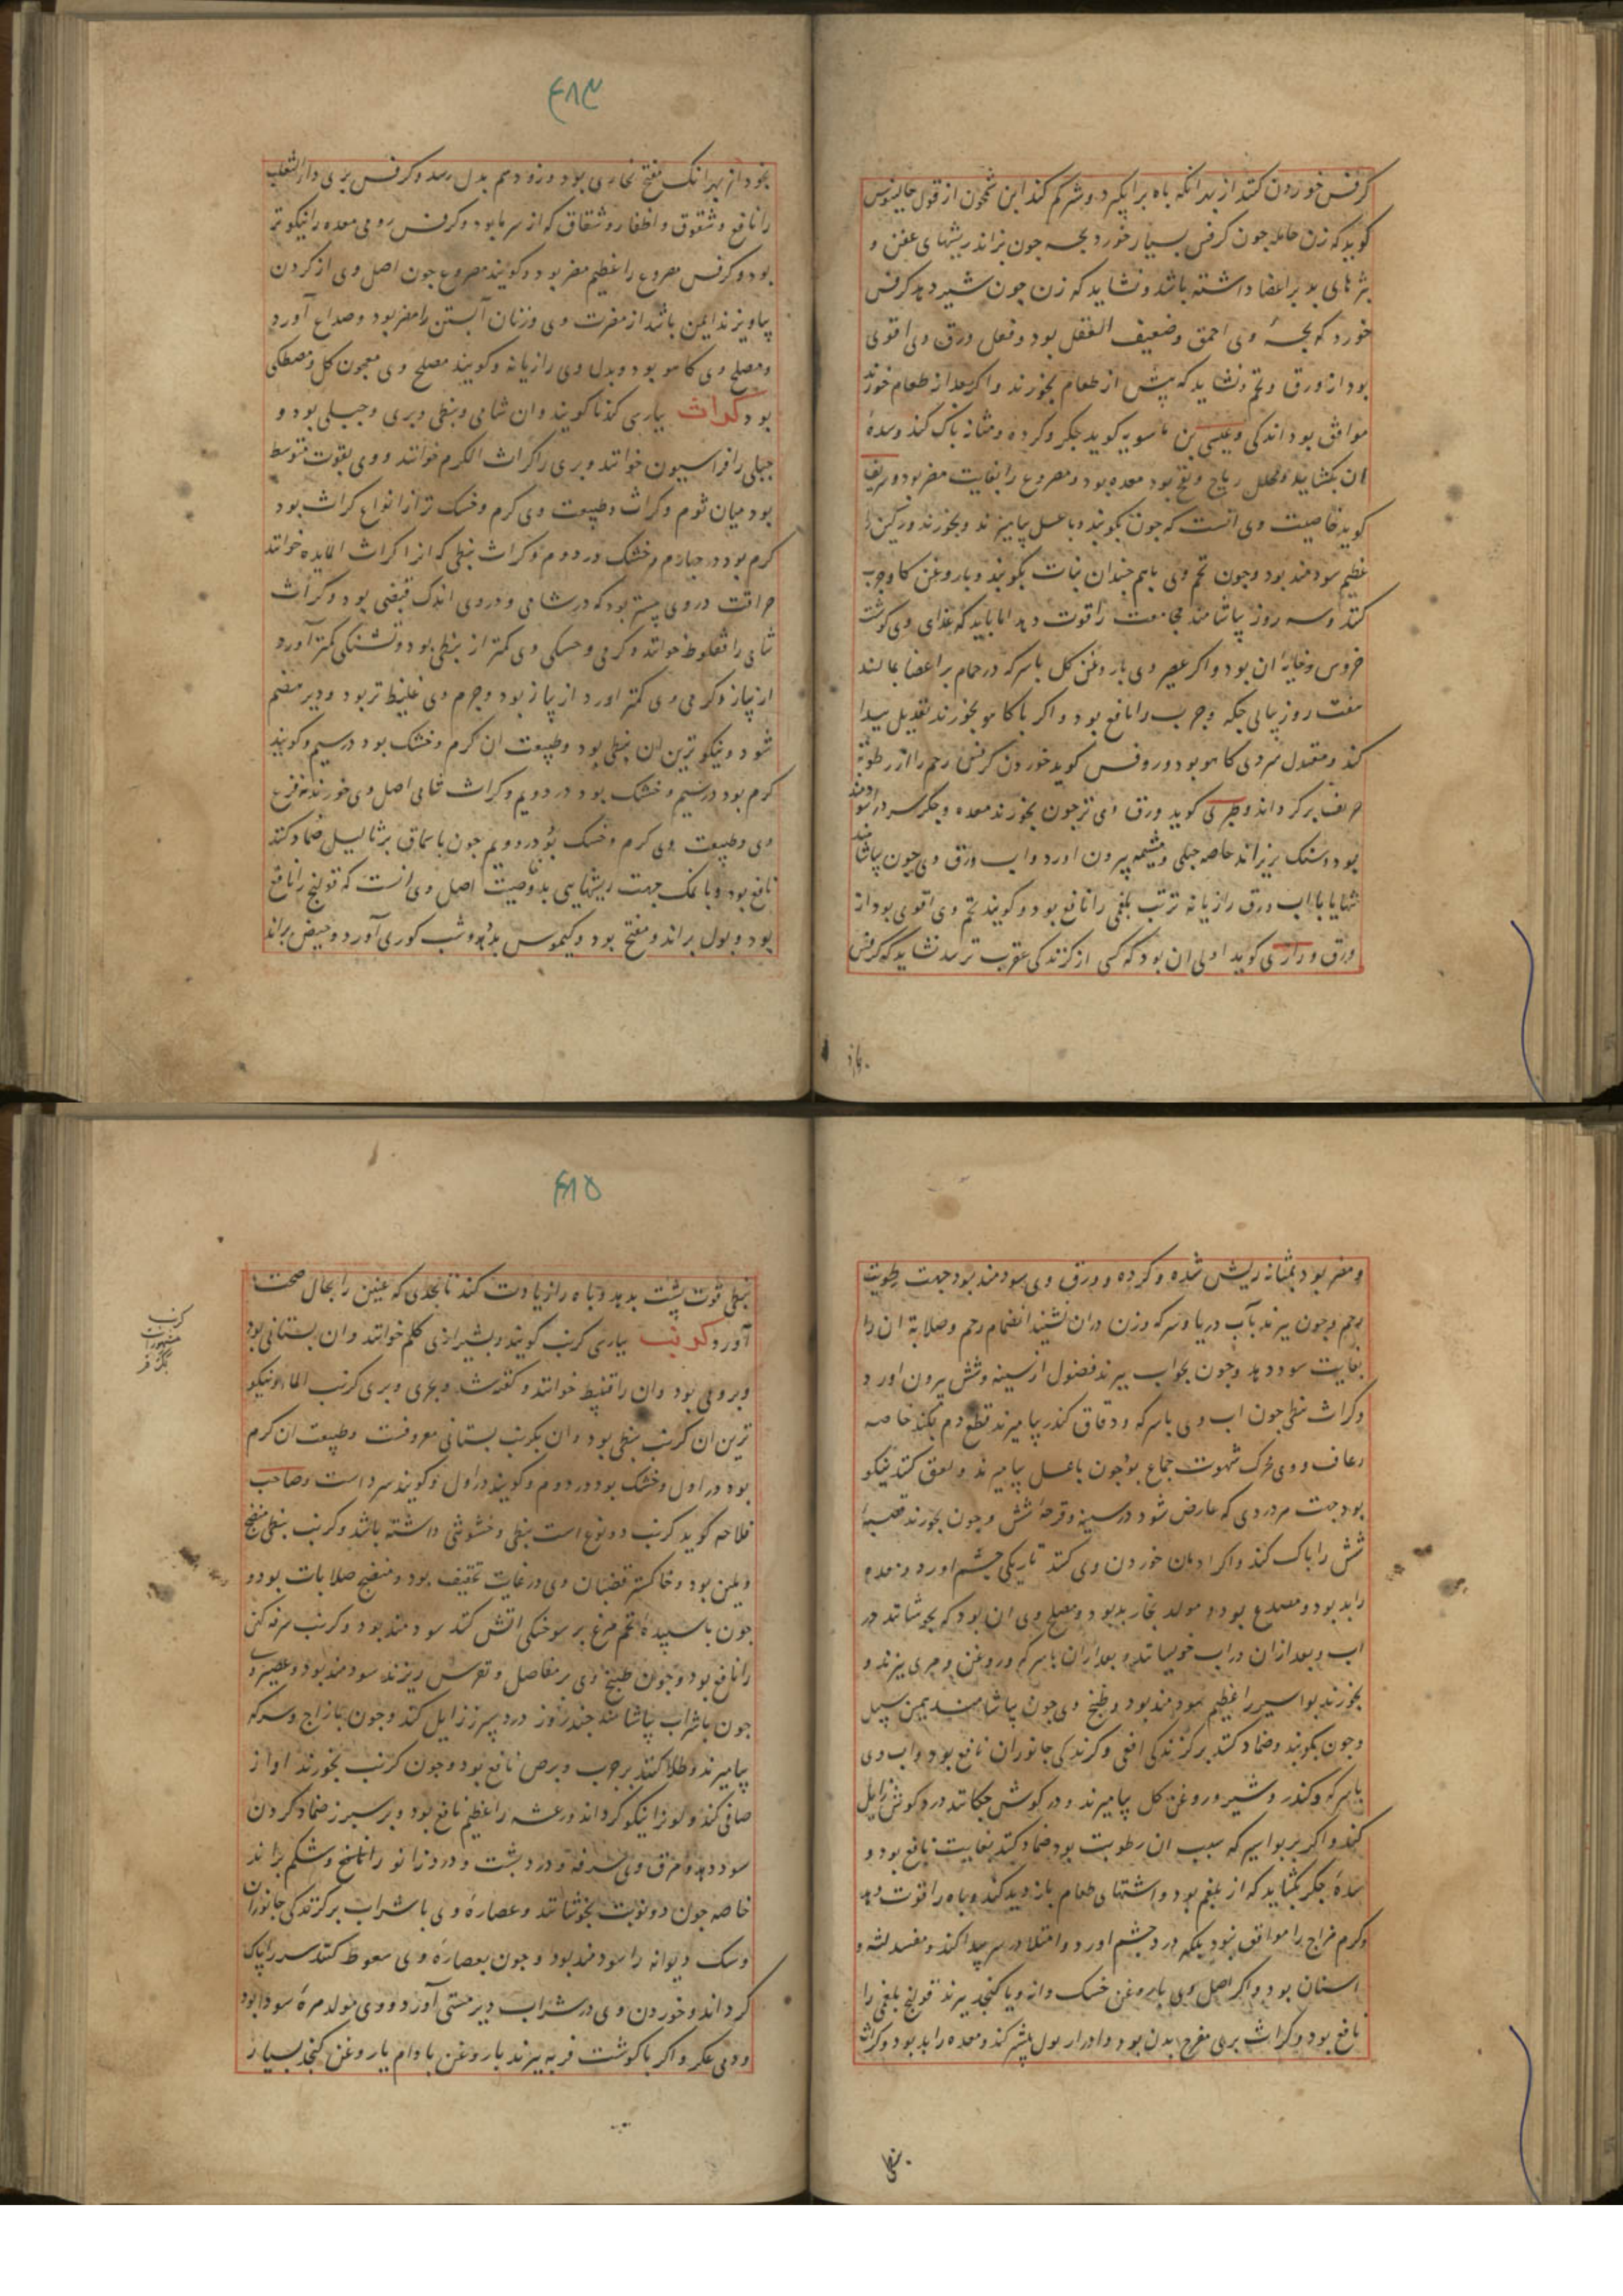 کرفس خوردن کتد از بهر آنکه باه برانکیزد و شرکم کند این سخون از قول جالینوس
کوید که زن حامله چون کرفس بسیار خورد بچه چون بزاند ریشهای عفن و
بثرهای بد بر اعضا داشته باشد و نشاید که زن چون شیر دهد کرفس
خورد که بچه وی احمق و ضعیف العقل بود و فعل ورق وی اقوی
بود از ورق و تخم و نشاید که پیش از طعام بخورند و اکر بعد از طعام خورند
موافق بود اندکی و عیسی بن ماسویه کوید جکر و کرده و مثانه پاک کند و سدهٔ
ان بکشاید و محلل ریاح و نفخ بود معده بود و مصروع را بغایت مضر بود و شریف
کوید خاصیت وی آنست که چون بکوبند و با عسل بیامیزند و بخورند
عظیم سودمند بود و چون تخم وی باهم چندان نبات بکوبند و با روغن کاو چرب
کتد و سه روز بیاشامند مجامعت را قوت دهد اما باید که غذای وی کوشت
خروس و خایهٔ ان بود و اکر عصیر وی با روغن کل با سرکه در حمام بر اعضا بمالند
هفت روز پیاپی حکه و جرب را نافع بود و اکر با کاهو بخورند تعدیل پیدا
کند و معتدل سردی کاهو بود و روفس کوید خوردن کرفس رحم را از رطوبة
حریف پر کرداند و طبری کوید ورق وی تر چون بخورند معده و جکر سرد را سودمند
بود و سنک بریزاند خاصه جبلی و مشیمه بیرون اورد و اب ورق وی چون بیاشامند
تنها یا با اب ورق رازیانه تر تب بلغمی را نافع بود و کویند تخم وی اقوی بود از
ورق و رازی کوید اولی ان بود که کسی از کزندکی عقرب ترسد نشاید که کرفس
۴۸۳
بخورد از بهر انک مفتح مجاری بود و زود سم بدل رسد و کرفس بری داء الثعلب
را نافع و شقوق و اظفار و شقاق که از سرما بود و کرفس رومی معده را نیکوتر
بود و کرفس مصروع را عظیم مضر بود و کویند مصروع چون اصل وی از کردن
بیاویزند ایمن باشد از مضرت وی و زنان آبستن را مضر بود و صداع آورد
و مصلح وی کاهو بود و بدل وی رازیانه و کویند مصلح وی معجون کل و مصطکی
بود کراث بپارسی کندنا کویند و ان شامی و نبطی و بری و جبلی بود و
جبلی را فراسیون خوانند و بری را کراث الکرم خوانند و وی بقوت متوسط
بود میان ثوم و کراث و طبیعت وی کرم و خشک تر از انواع کراث بود
کرم بود در چهارم و خشک در دوم و کراث نبطی که انرا کراث المایده خوانند
حرافت در وی بیشتر بود که در شامی و در وی اندک قبضی بود و کراث
شامی را قفلوط خوانند و کرمی و خشکی وی کمتر از نبطی بود و تشنکی کمتر آورد
از پیاز و کرمی وی کمتر اورد از پیاز بود و جرم وی غلیظ تر بود و دیر هضم
شود و نیکوترین ان نبطی بود و طبیعت ان کرم و خشک بود در سیم و کویند
کرم بود در سیم و خشک بود در دویم و کراث شامی اصل وی خورند نه فرع
وی و طبیعت وی کرم و خشک بود در دویم چون با سماق بر ثآلیل ضماد کنند
نافع بود و با نمک جهت ریشهایی بد و خاصیت اصل وی آنست که قولنج را نافع
بود و بول براند و مفتح بود و کیموس بد بود و شب کوری آورد و حیض براند
و مضر بود بمثانه ریش شده و کرده و ورق وی سودمند بود جهت رطوبت
رحم و چون بپزند بآب دریا و سرکه و زن دران نشیند انضمام رحم و صلابة ان را
بغایت سود دهد و چون بجواب بپزند فضول از سینه و شش بیرون اورد
و کراث نبطی چون اب وی با سرکه و دقاق کندر بیامیزند قطع دم بکند خاصه
رعاف و وی محرک شهوت جماع بود چون با عسل بیامیزند و لعق کنند نیکو
بود جهت هر دردی که عارض شود در سینه و قرحهٔ شش و چون بخورند قصبهٔ
شش را پاک کند و اکر ادمان خوردن وی کنند تاریکی چشم اورد و معده
را بد بود و مصدع بود و مولد بخار بد بود و مصلح وی ان بود که بجوشانند در
اب و بعد ازان در اب خویسانند و بعد ازان با سرکه و روغن و مری بپزند و
بخورند بواسیر را عظیم سودمند بود و طبخ وی چون بیاشامند بهمین سبیل
و چون بکوبند و ضماد کنند بر کزندکی افعی و کزندکی جانوران نافع بود و اب وی
با سرکه و کندر و شیر و روغن کل بیامیزند و در کوش چکانند درد کوش زایل
کند و اکر بر بواسیر که سبب ان رطوبت بود ضماد کنند بغایت نافع بود و
سدهٔ جکر بکشاید که از بلغم بود و اشتهای طعام باز دید کند و باه را قوت دهد
و کرم مزاج را موافق نبود بلکه درد چشم اورد و امتلا در سر پیدا کند و مفسد لثه و
اسنان بود و اکر اصل وی با روغن خسک دانه و یا کنجد بپزند قولنج بلغمی را
نافع بود و کراث بری مقرح بدن بود و ادرار بول بیشتر کند و معده را بد بود و کراث
نبطی
۴۸۵
نبطی قوت پشت بدهد و باه را زیادت کند تا بحدی که عنین را بحال صحت
آورد کرنب بپارسی کرنب کویند و بشیرازی کلم خوانند و ان بستانی بود
و بری بود و ان را قنبیط خوانند و بحری و بری کرنب الماء و نیکو
ترین ان کرنب نبطی بود و ان بکرنب بستانی معروفست و طبیعت ان کرم
بود در اول و خشک بود در دوم و کویند در اول و کویند سرد است و صاحب
فلاحه کوید کرنب دو نوع است نبطی و خشونتی داشته باشد و کرنب نبطی منضج
و ملین بود و خاکستر قضبان وی در غایت تجفیف بود و منضج صلابات بود و
چون با سپیدهٔ تخم مرغ بر سوختکی اتش کنند سودمند بود و کرنب سرفه کهن
را نافع بود و چون طبیخ وی بر مفاصل و نقرس ریزند سودمند بود و عصیر وی
چون با شراب بیاشامند چند روز درد سپرز زایل کند و چون با زاج و سرکه
بیامیزند و طلا کنند بر جرب و برص نافع بود و چون کرنب بخورند اواز
صافی کند و لون را نیکو کرداند و رعشه را عظیم نافع بود و بر سپرز ضماد کردن
سود دهد و مرق وی سرفه و درد پشت و درد زانو را نافع و شکم براند
خاصه چون دو نوبت بجوشانند و عصارهٔ وی با شراب بر کزندکی جانوران
و سک دیوانه را سودمند بود و چون بعصارهٔ وی سعوط کنند سر را پاک
کرداند و خوردن وی در شراب دیر مستی آورد و وی مولد مرهٔ سودا بود
و دمی عکر و اکر با کوشت فربه بپزند با روغن بادام یا روغن کنجد بسیار
کرنب